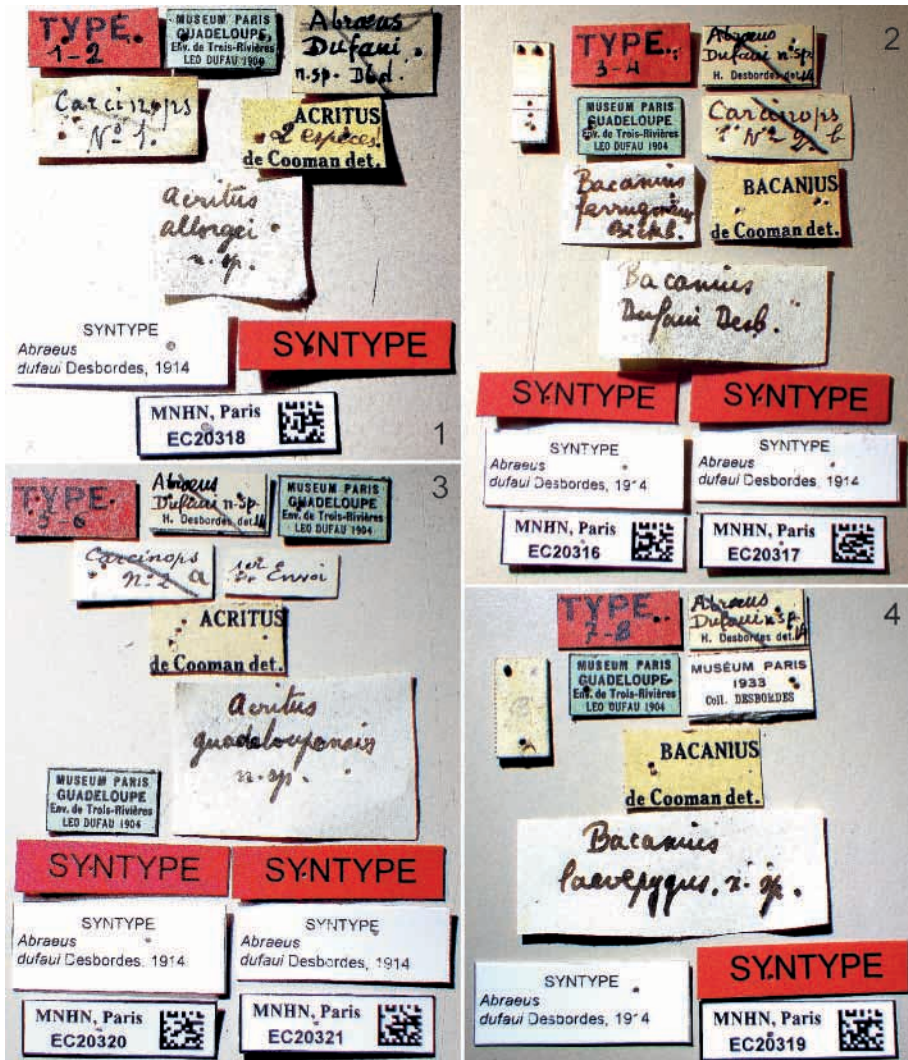 TYPE.
1-2
MUSEUM PARIS
GUADELOUPE
Env. de Trois-Rivières
LEO DUFAU 1904
Abraeus
Dufaui
n.sp. Dbd.
Carcinops
Nº 1.
ACRITUS
2 espèces
de Cooman det.
Acritus
allorgei
n. sp.
SYNTYPE
Abraeus
dufaui Desbordes, 1914
SYNTYPE
MNHN, Paris
EC20318
1
2
TYPE.
3-4
Abraeus
Dufaui n.sp.
H. Desbordes det. 14
MUSEUM PARIS
GUADELOUPE
Env. de Trois-Rivières
LEO DUFAU 1904
Carcinops
Nº 2 b
Bacanius
ferrugineus
Bickh.
BACANIUS
de Cooman det.
Bacanius
Dufaui Desb.
SYNTYPE
SYNTYPE
SYNTYPE
Abraeus
dufaui Desbordes, 1914
SYNTYPE
Abraeus
dufaui Desbordes, 1914
MNHN, Paris
EC20316
MNHN, Paris
EC20317
3
TYPE.
5-6
Abraeus
Dufaui n.sp.
H. Desbordes det. 14
MUSEUM PARIS
GUADELOUPE
Env. de Trois-Rivières
LEO DUFAU 1904
Carcinops
nº 2 a
1er
Envoi
ACRITUS
de Cooman det.
Acritus
guadeloupensis
n. sp.
MUSEUM PARIS
GUADELOUPE
Env. de Trois-Rivières
LEO DUFAU 1904
SYNTYPE
SYNTYPE
SYNTYPE
Abraeus
dufaui Desbordes, 1914
SYNTYPE
Abraeus
dufaui Desbordes, 1914
MNHN, Paris
EC20320
MNHN, Paris
EC20321
4
TYPE.
7-8
Abraeus
Dufaui n.sp.
H. Desbordes det. 14
MUSEUM PARIS
GUADELOUPE
Env. de Trois-Rivières
LEO DUFAU 1904
MUSÉUM PARIS
1933
Coll. DESBORDES
BACANIUS
de Cooman det.
Bacanius
laevepygus. n. sp.
SYNTYPE
Abraeus
dufaui Desbordes, 1914
SYNTYPE
MNHN, Paris
EC20319